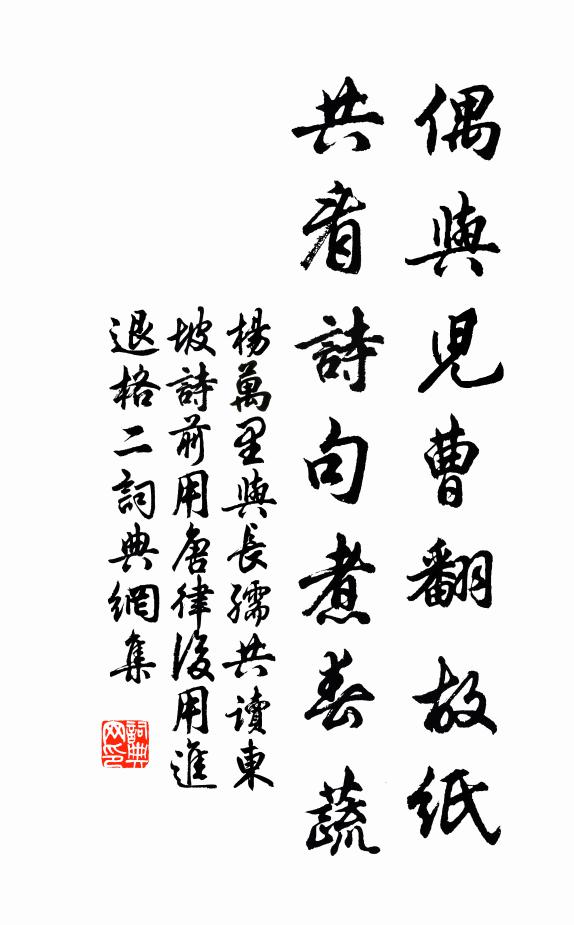 偶與兒曹翻故紙
共看詩句煮春蔬
楊萬里與長孺共讀東
坡詩前用唐律後用進
退格二詞典網集
詞典網印